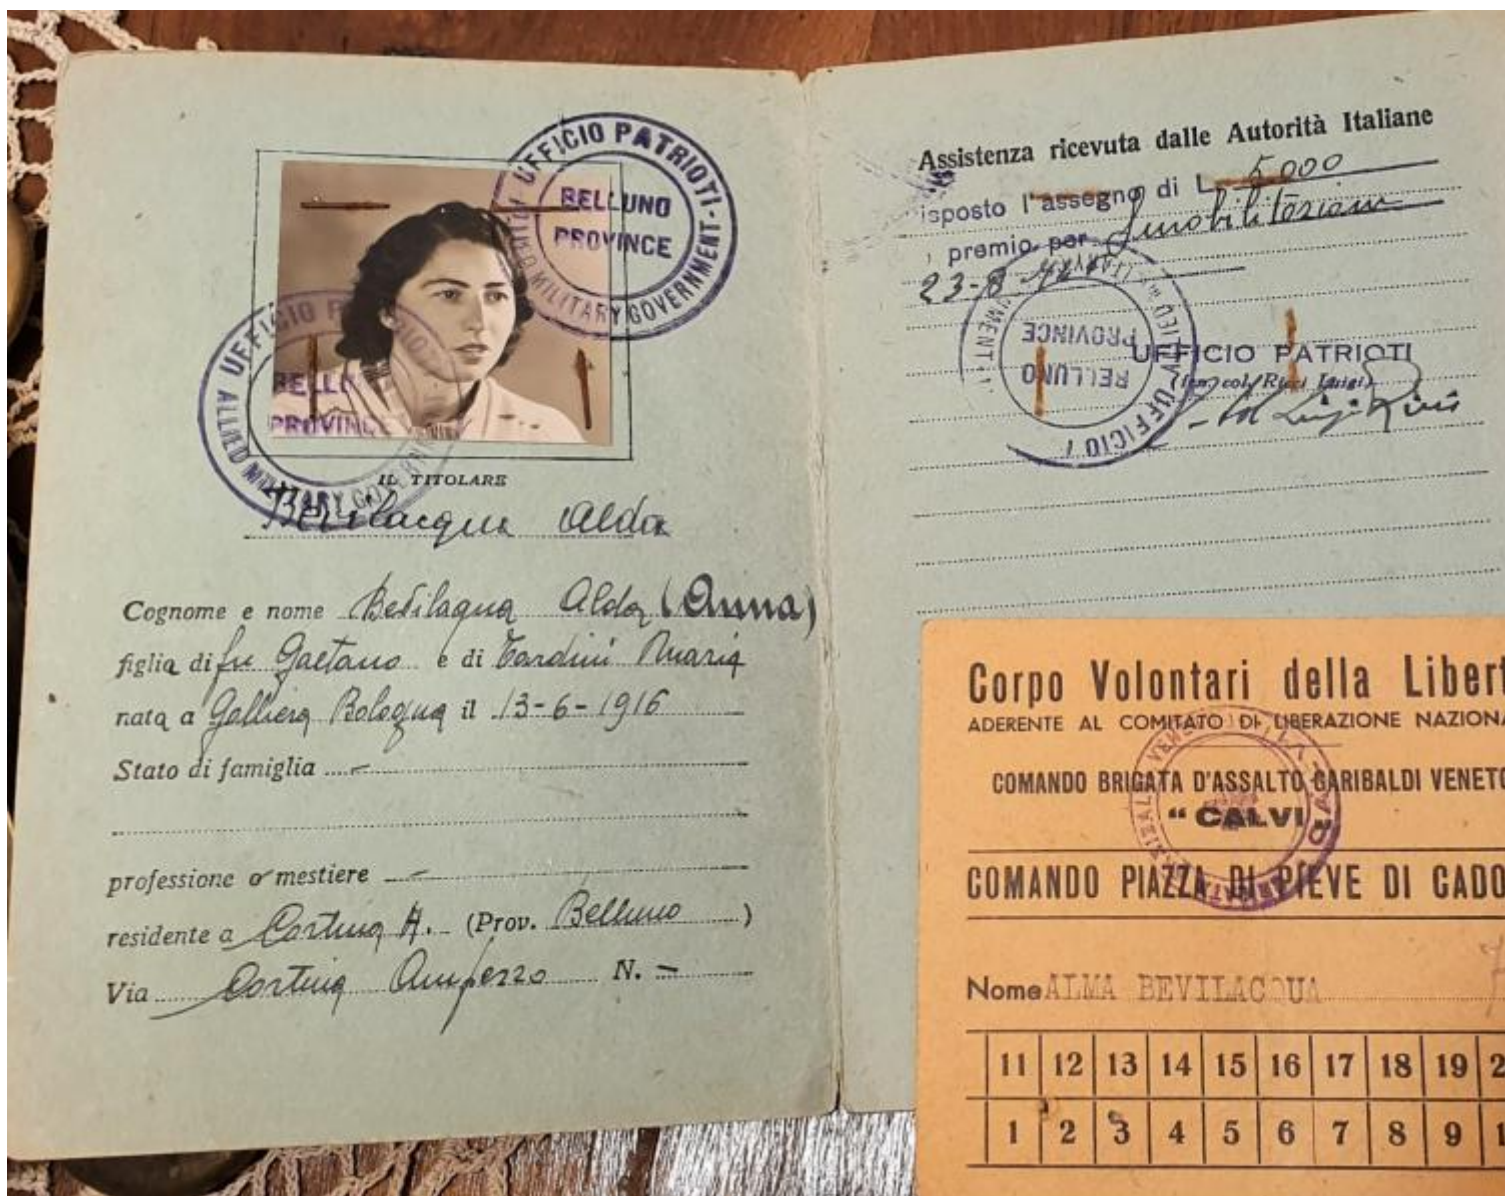 UFFICIO PATRIOTI - ALLIED MILITARY GOVERNMENT
BELLUNO
PROVINCE
UFFICIO
ALLIED MILITARY
BELLU
PROVINCE
IL TITOLARE
Bevilacqua Alda
Cognome e nome Bevilaqua Alda (Anna)
figlia di fu Gaetano e di Tardini Maria
nata a Galliera Bologna il 13-6-1916
Stato di famiglia
professione o mestiere
residente a Cortina A. (Prov. Belluno)
Via Cortina Ampezzo N. -
Assistenza ricevuta dalle Autorità Italiane
isposto l'assegno di L. 5.000
premio per Smobilitazione
23-8
UFFICIO
BELLUNO
PROVINCE
UFFICIO PATRIOTI
(ten. col. Ricci Luigi)
Luigi Ricci
Corpo Volontari della Libert
ADERENTE AL COMITATO DI LIBERAZIONE NAZIONA
COMANDO BRIGATA D'ASSALTO GARIBALDI VENETO
"CALVI"
COMANDO PIAZZA DI PIEVE DI CADO
Nome ALMA BEVILACQUA
11 12 13 14 15 16 17 18 19 2
1 2 3 4 5 6 7 8 9 1